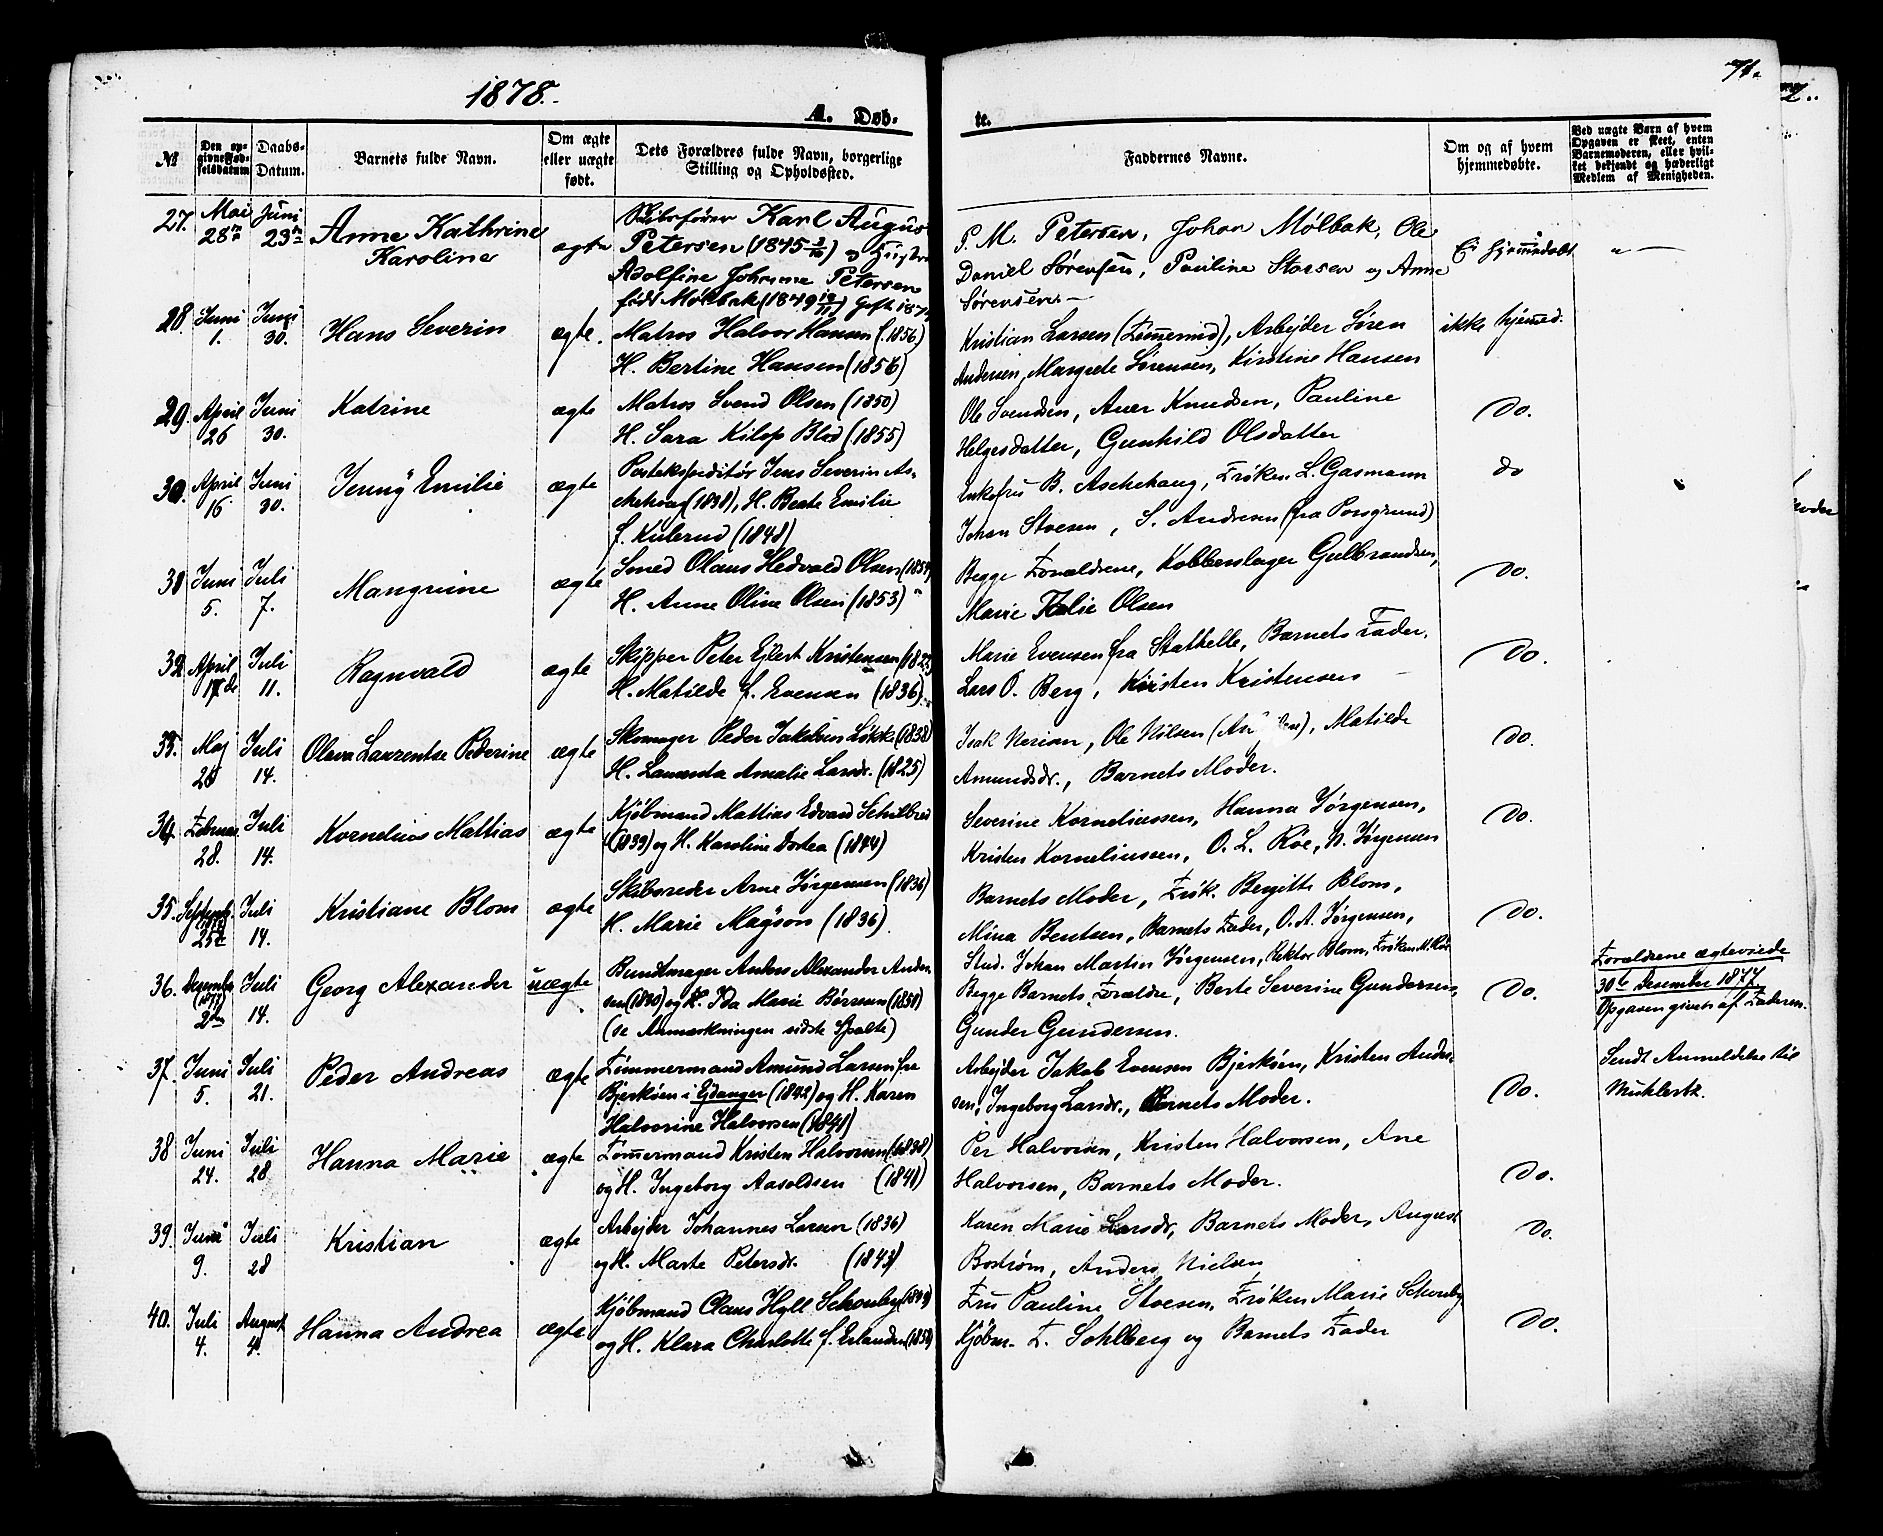 1878.
71.
A. Døb-
te.
№
Den op-
givne Fød-
selsdatum
Daabs-
Datum.
Barnets fulde Navn.
Om ægte
eller uægte
født.
Dets Forældres fulde Navn, borgerlige
Stilling og Opholdssted.
Faddernes Navne.
Om og af hvem
hjemmedøbte.
Ved uægte Børn af hvem
Opgaven er skeet, enten
Barnemoderen, eller hvil-
ket bekjendt og hæderligt
Medlem af Menigheden.
27. Mai Juni
28de 23de
Anne Kathrine
Karoline
ægte
Skibsfører Karl August
Petersen (1845 og Hustru
Adolfine Johanne Petersen
født Mølbak (1849 Gift
P. M. Petersen, Johan Mølbak, Ole
Daniel Sørensen, Pauline Stoesen og Anne
Sørensen
Ei hjemmedøbt
28 Juni Juni
1. 30.
Hans Severin
ægte.
Matros Halvor Hansen (1856)
H. Bertine Hansen (1856)
Kristian Larsen (Tømmermd), Arbejder Søren
Andersen, Margrete Sørensen, Kirstine Hansen
ikke hjemmed.
29. April Juni
26 30.
Katrine
ægte
Matros Svend Olsen (1850)
H. Sara Kilop Blod (1855)
Ole Svendsen, Aner Knudsen, Pauline
Helgesdatter, Gunhild Olsdatter
Do.
30. April Juni
16 30.
Jenny Emilie
ægte
Postekspeditør Jens Severin As-
chehoug (1838), H. Beate Emilie
f. Kulerud (1848)
Enkefru B. Aschehoug, Frøken L. Gasmann
Johan Stoesen, S. Andresen (fra Porsgrund)
do
31 Juni Juli
5. 7.
Mangrine
ægte
Smed Olaus Hedvald Olsen
H. Anne Oline Olsen (1853)
Begge Forældrene, Kobberslager Gulbrandsen,
Marie Olsen
Do.
32 April Juli
17de 11.
Ragnvald
ægte
Skipper Peter Ejlert Kristensen
H. Matilde f. Evensen (1836)
Marie Evensen fra Stathelle, Barnets Fader,
Lars O. Berg, Kirsten Kristensen
Do.
33. Maj Juli
14.
Olava Laurentse Pederine
ægte
Skomager Peder Jakobsen Løkke (1832)
H. Laurenta Amalie Larsdr. (1825)
Isak Nerian, Ole Nilsen, Matilde
Amundsdr., Barnets Moder.
Do.
34. Februar Juli
28. 14.
Kornelius Mattias
ægte
Kjøbmand Mattias Edvard Schilbred
(1839) og H. Karoline Dortea (1844)
Severine Korneliussen, Hanna Jørgensen,
Kristen Korneliussen, O. L. Röe, N. Jørgensen
Do.
35. Septemb. Juli
25de 14.
Kristiane Blom
ægte
Skibsreder Arne Jørgensen (1836)
H. Marie Magson (1836)
Barnets Moder, Frøk. Bergitte Blom,
Mina Bentsen, Barnets Fader, O. A. Jørgensen,
Stud. Johan Martin Jørgensen, Rektor Blom, Frøken M. Röe
Do.
36. Desember Juli
(1877)
2den 14.
Georg Alexander
uægte
Bundtmager Anders Alexander Ander-
sen (1850) og H. Ida Marie Børresen (1858)
(se Anmærkningen sidste Spalte)
Begge Barnets Forældre, Berte Severine Gundersen,
Gunder Gundersen.
Do.
Forældrene ægteviede
30te Desember 1877
Opgaven given af Faderen.
37. Juni Juli
5. 21.
Peder Andreas
ægte
Tømmermand Amund Larsen fra
Bjerkøen i Ejdanger (1842) og H. Karen
Halvorine Halvorsen (1841)
Arbejder Jakob Evensen Bjerkøen, Kristen Ander-
sen, Ingeborg Larsdr., Barnets Moder.
Do.
Sendt Anmeldelse til
38 Juni Juli
24. 28
Hanna Marie
ægte
Tømmermand Kristen Halvorsen (1838)
og H. Ingeborg Aasoldsen (1841)
Per Halvorsen, Kristen Halvorsen, Ane
Halvorsen, Barnets Moder.
Do.
39. Juni Juli
9. 28
Kristian
ægte
Arbejder Johannes Larsen (1836)
og H. Marte Petersdr. (1843)
Karen Marie Larsdr, Barnets Moder, August
Bostrøm, Anders Nielsen
Do.
40. Juli August
4. 4.
Hanna Andrea
ægte
Kjøbmand Claus Hyll Schouby
og H. Klara Charlotte f. Erlandsen (1850)
Fru Pauline Stoesen, Frøken Marie Schouby
Kjøbm. F. Sohlberg og Barnets Fader
Do.